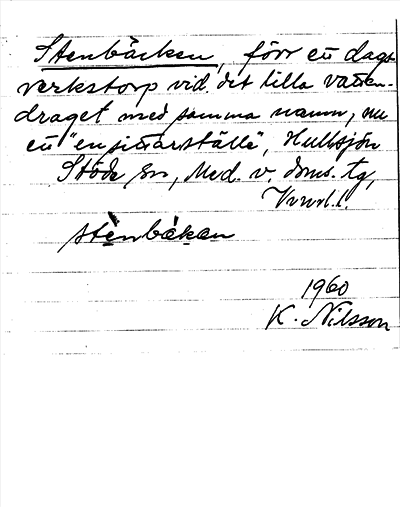 Stenbäcken, förr ett dags-
verkstorp vid det lilla vatten-
draget med samma namn, nu
ett "ensittarställe", Hullsjön
Stöde sn, Med. v. doms. tg,
Vnrl. l.
stènbäkan
1960
K. Nilsson